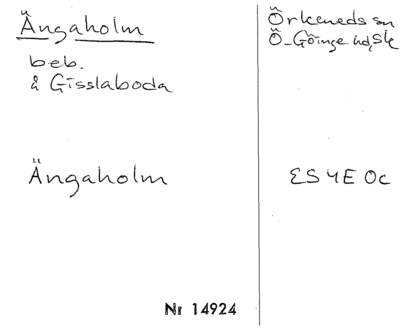 Ängaholm
beb.
å Gisslaboda
Ängaholm
Nr 14924
Örkeneds sn
Ö-Göinge hd, Sk
ES 4E 0c